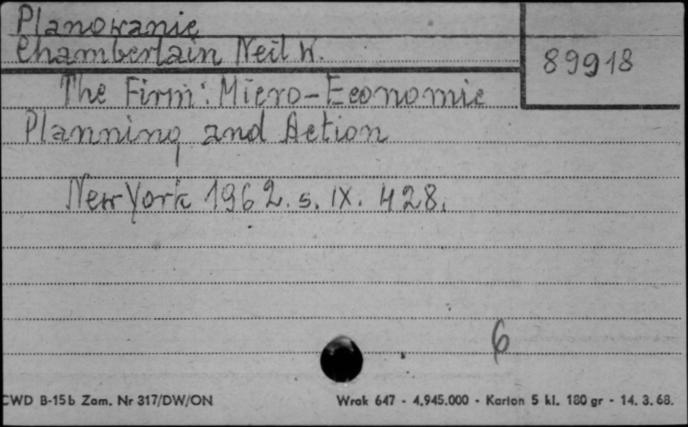 Planowanie
Chamberlain Neil W.
89918
The Firm: Micro-Economic
Planning and Action
New York 1962. s. IX. 428.
6
CWD B-15b Zam. Nr 317/DW/ON
Wrak 647 - 4.945.000 - Karton 5 kl. 180 gr - 14. 3. 68.